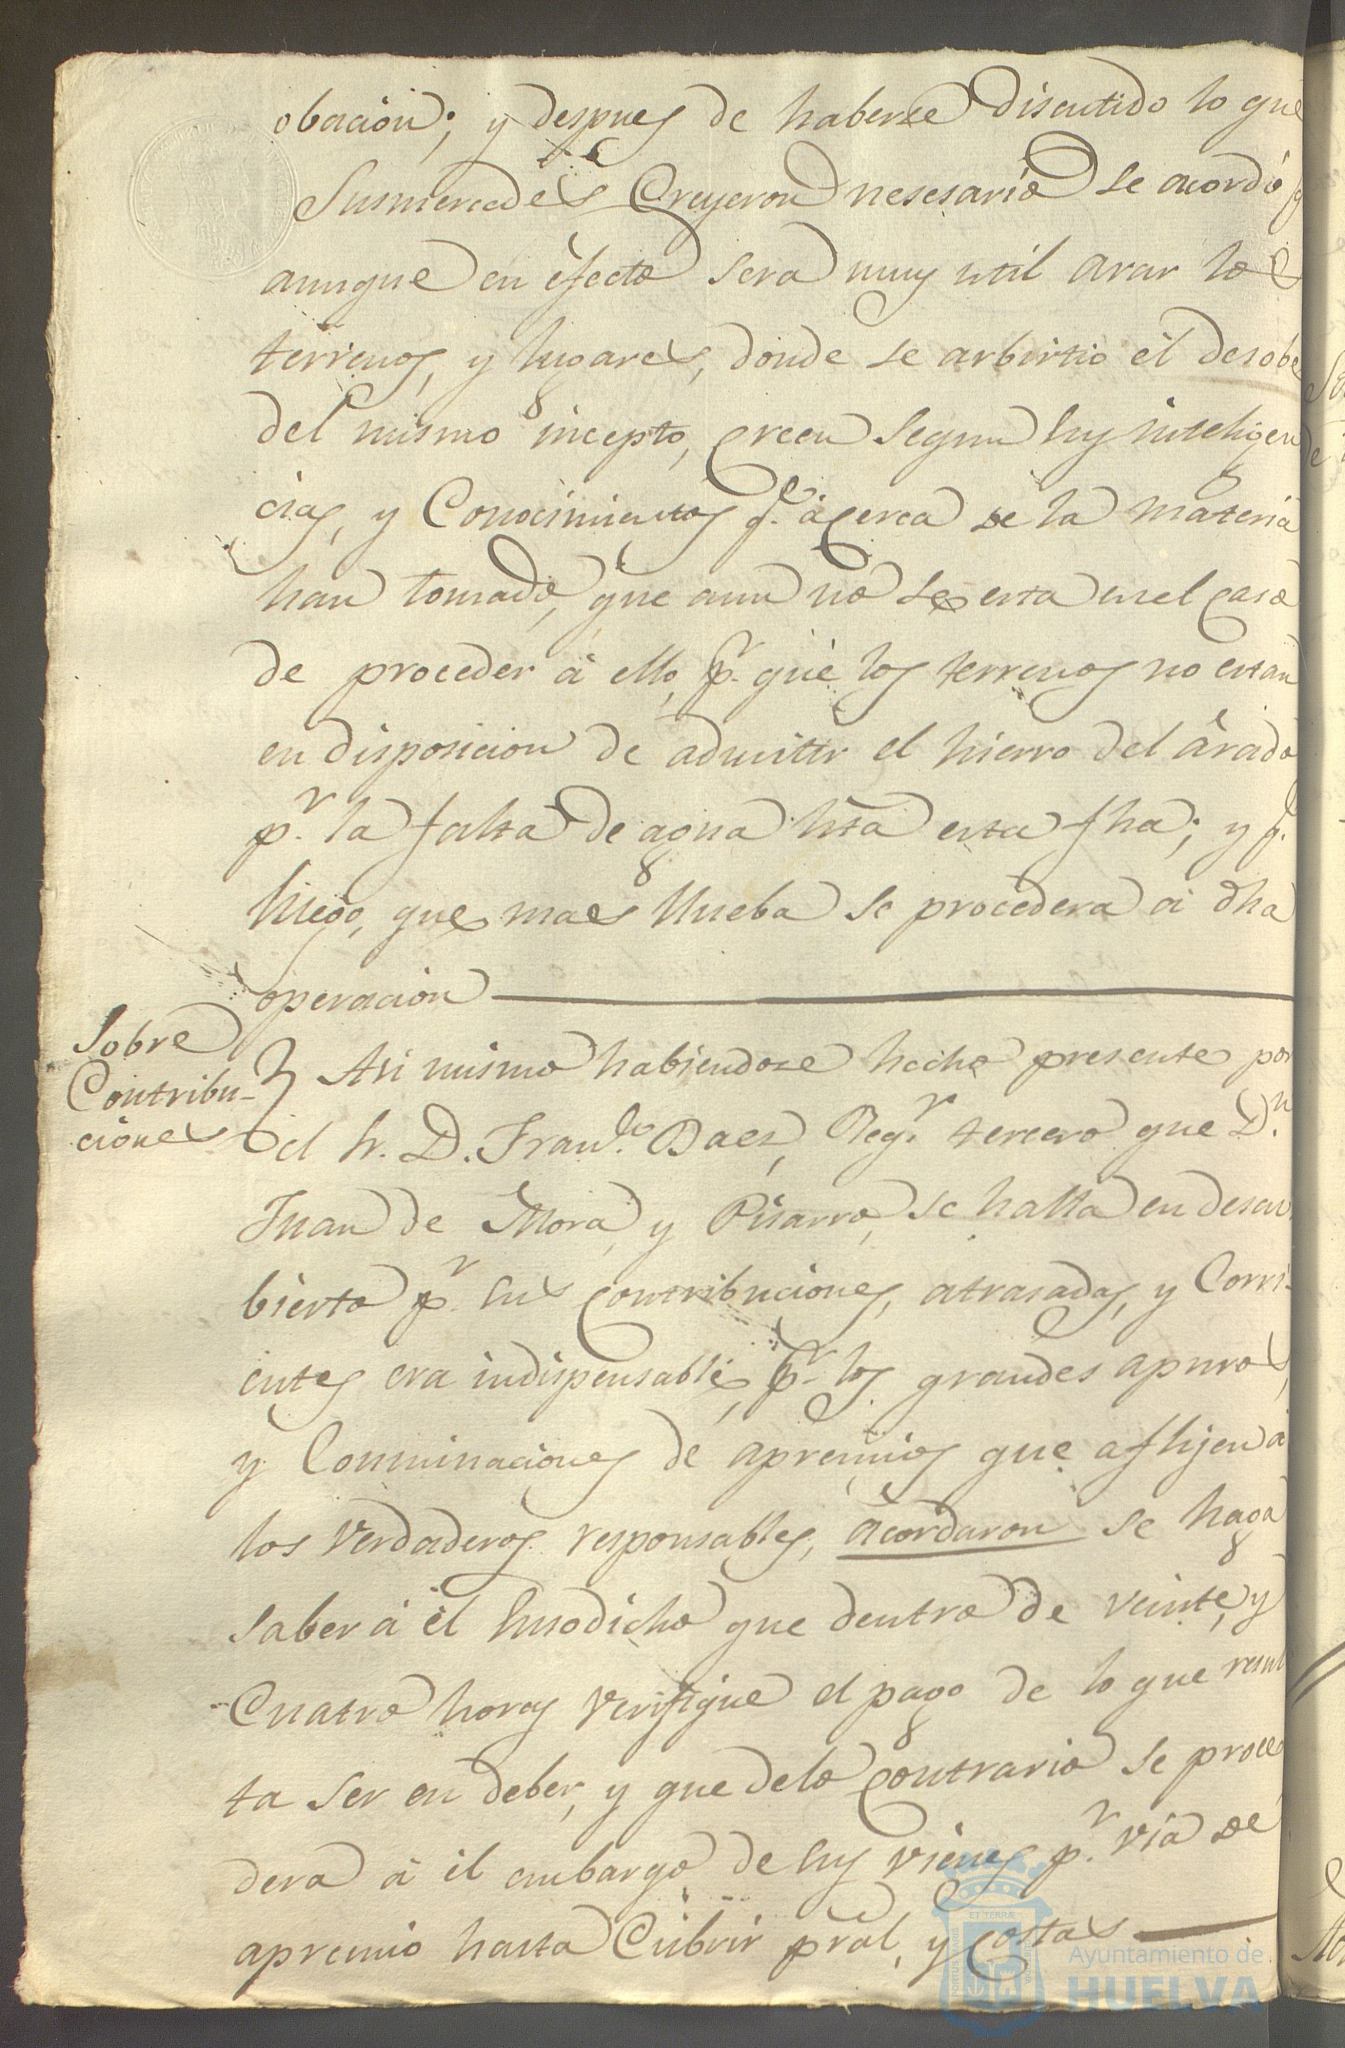 obacion; y despues de haberse discutido lo que
Susmercedes Creyeron nesesario se acordó q.
aunque en efecto sera muy util arar los
terrenos, y lugares, donde se arbirtio el desobe
del mismo incepto, creen segun sus inteligen
cias, y Conocimientos q.e acerca de la materia
han tomado, que aun no se esta en el caso
de proceder á ello, p.r que los terrenos no estan
en disposicion de admitir el hierro del arado
p.r la falta de agua hta esta fha; y q.
luego, que mas llueba se procedera á dha
operacion
Sobre
Contribu-
ciones
Asi mismo habiendose hecho presente por
el Sr. D. Fran.co Baez, Reg.r tercero que D.n
Juan de Mora, y Pisarro, se halla en descu
bierto p.r sus contribuciones, atrasadas, y Corri-
entes era indispensable, p.r los grandes apuros,
y Conminaciones de apremios que aflijen á
los verdaderos responsables, acordaron se haga
saber á el susodicho que dentro de veinte, y
Cuatro horas verifique el pago de lo que resul
ta ser en deber, y que delo contrario se proce
dera á el embargo de sus vienes p.r via de
apremio hasta Cubrir pral, y costas
Ayuntamiento de
HUELVA